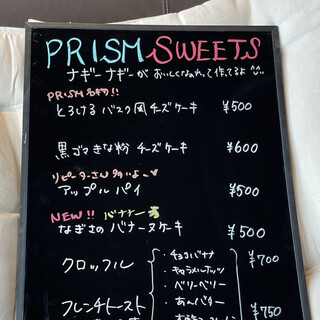 PRISM SWEETS
ナギーナギーが おいしくなぁれって作ってるよ
PRISM名物!!
とろける バスク風チーズケーキ ¥500
黒ゴマきな粉 チーズケーキ ¥600
リピーターさん多いよ～
アップルパイ ¥500
NEW!! バナナー
なぎさの バナーヌケーキ ¥500
クロッフル
・チョコバナナ ¥700
・キャラメルナッツ
・ベリーベリー
フレンチトースト
・あんバター ¥750